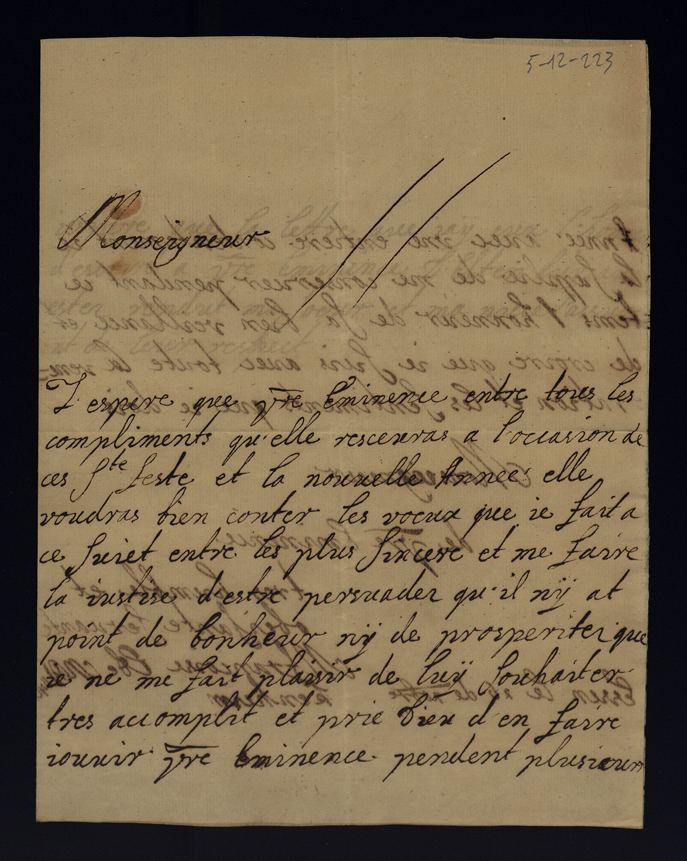 5-12-223
Monseigneur
J espere que vre Eminence entre tous les
compliments qu'elle resceuras a l'occasion de
ces Ste feste et la nouuelle Anneé elle
voudras bien conter les voeux que ie fait a
ce suiet entre les plus sincere et me faire
la iustise d'estre persuader qu'il nÿ at
point de bonheur nÿ de prosperiter que
ie ne me fait plaisir de luÿ souhaiter
tres accomplit et prie Dieu d'en faire
iouuir vre Eminence pendent plusieurs